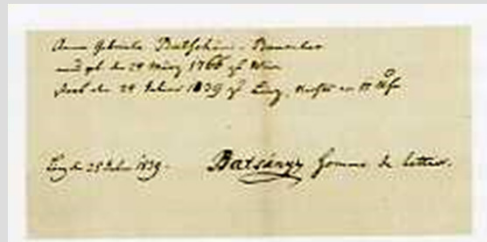 Anna Gabriele Batsányi - Baumberg
ward geb. den 24 März 1766 zu Wien
starb den 24 Julius 1839 zu Linz, um 11 Uhr
Linz den 25 Julius 1839. Batsányi homme de lettres.